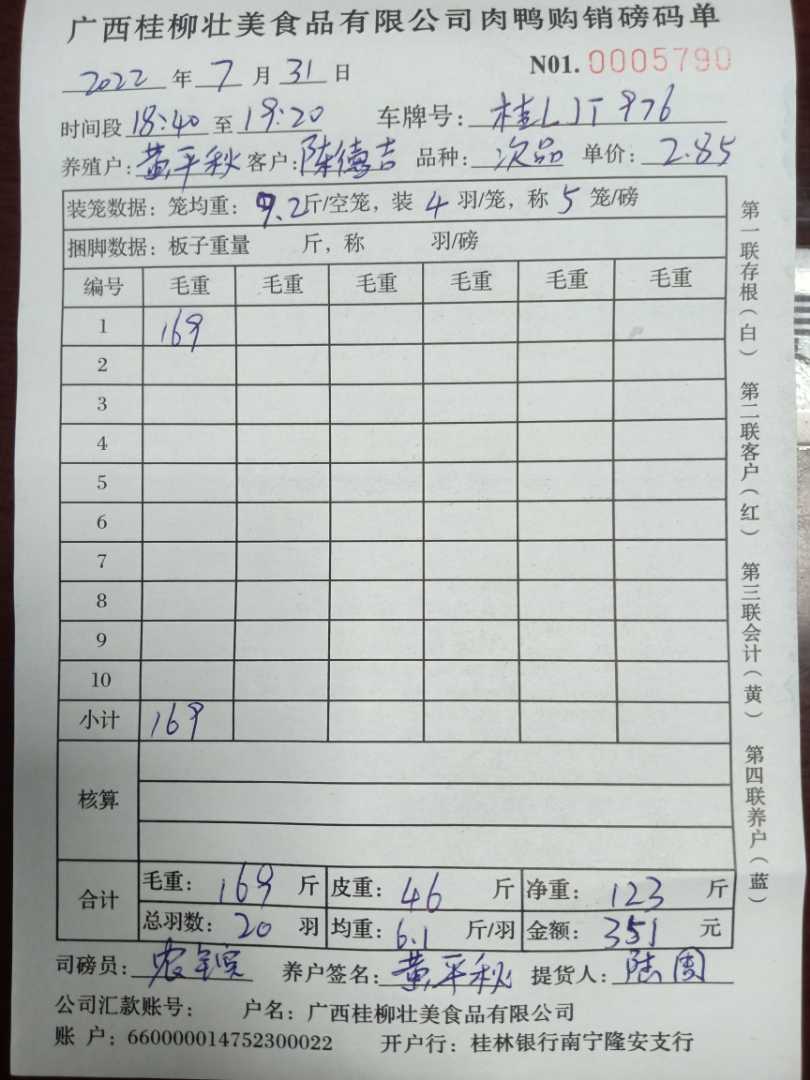 广西桂柳壮美食品有限公司肉鸭购销磅码单
2022 年 7 月 31 日 N01. 0005790
时间段 18:40 至 19:20 车牌号: 桂LJT976
养殖户: 黄平秋 客户: 陈德吉 品种: 次品 单价: 2.85
装笼数据: 笼均重: 9.2 斤/空笼, 装 4 羽/笼, 称 5 笼/磅
捆脚数据: 板子重量 斤, 称 羽/磅
编号 毛重 毛重 毛重 毛重 毛重 毛重
1 169
2
3
4
5
6
7
8
9
10
小计 169
核算
合计 毛重: 169 斤 皮重: 46 斤 净重: 123 斤
总羽数: 20 羽 均重: 6.1 斤/羽 金额: 351 元
司磅员: 养户签名: 黄平秋 提货人: 陆周
公司汇款账号: 户名: 广西桂柳壮美食品有限公司
账 户: 660000014752300022 开户行: 桂林银行南宁隆安支行
第一联存根(白) 第二联客户(红) 第三联会计(黄) 第四联养户(蓝)